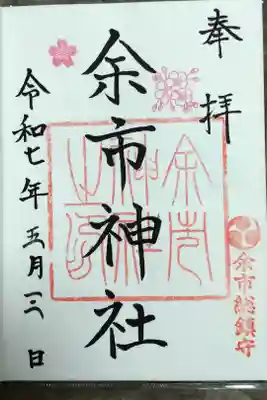 奉拝
余市総鎮守
余市神社
余市神社之印
令和七年五月二日